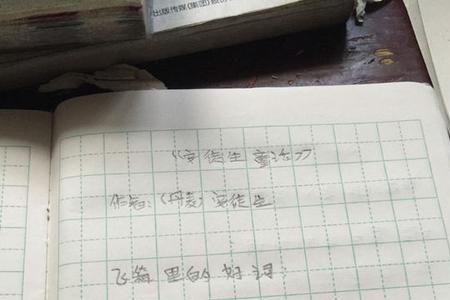 出版传媒(集团)
《安徒生童话》
作者:(丹麦)安徒生
飞箱里的好词: